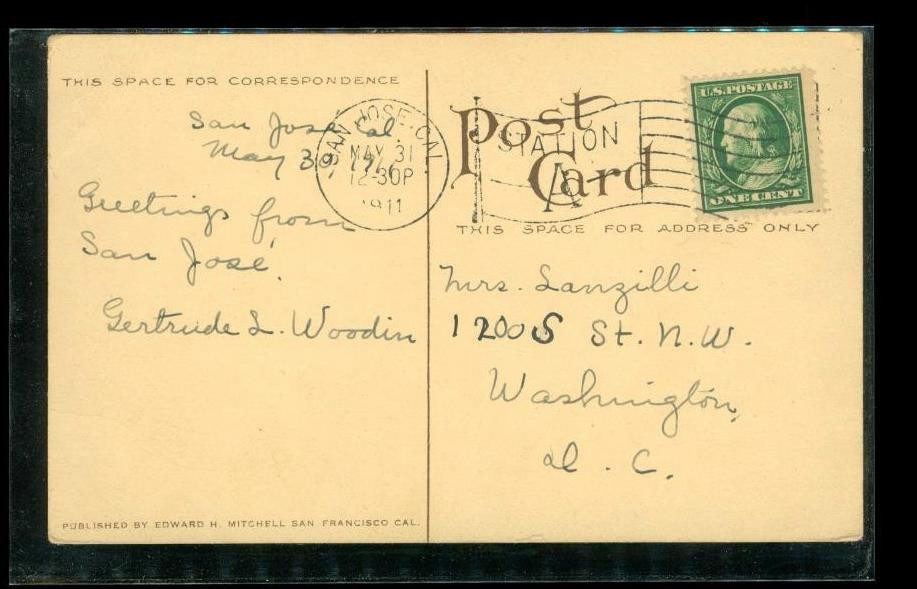 THIS SPACE FOR CORRESPONDENCE
San José Cal.
May 30
Greetings from
San José.
Gertrude L. Woodin
PUBLISHED BY EDWARD H. MITCHELL SAN FRANCISCO CAL.
SAN JOSE CAL.
MAY 31
12-30P
1911
STATION
A
Post
Card
U.S. POSTAGE
ONE CENT
THIS SPACE FOR ADDRESS ONLY
Mrs. Lanzilli
1200 S St. N.W.
Washington,
D. C.